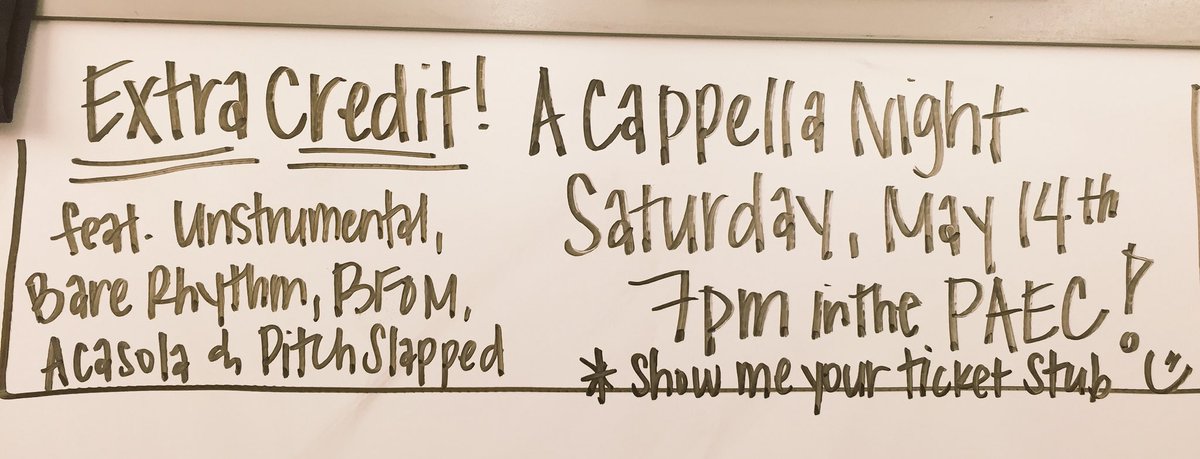 Extra Credit! A Cappella Night
Saturday, May 14th
7pm in the PAEC!
* Show me your ticket Stub
feat. Unstrumental,
Bare Rhythm, BFOM,
Acasola & Pitch Slapped